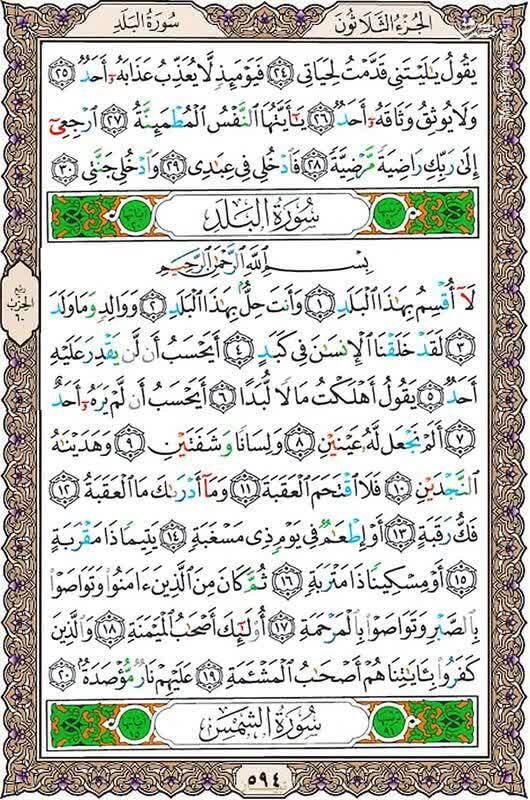 الجُزْءُ الثَّلَاثُونَ
سُورَةُ البَلَدِ
يَقُولُ يَٰلَيْتَنِي قَدَّمْتُ لِحَيَاتِي ٢٤ فَيَوْمَئِذٍ لَّا يُعَذِّبُ عَذَابَهُۥٓ أَحَدٌ ٢٥
وَلَا يُوثِقُ وَثَاقَهُۥٓ أَحَدٌ ٢٦ يَٰٓأَيَّتُهَا ٱلنَّفْسُ ٱلْمُطْمَئِنَّةُ ٢٧ ٱرْجِعِىٓ
إِلَىٰ رَبِّكِ رَاضِيَةً مَّرْضِيَّةً ٢٨ فَٱدْخُلِى فِى عِبَٰدِى ٢٩ وَٱدْخُلِى جَنَّتِى ٣٠
سُورَةُ البَلَدِ
بِسْمِ ٱللَّهِ ٱلرَّحْمَٰنِ ٱلرَّحِيمِ
لَآ أُقْسِمُ بِهَٰذَا ٱلْبَلَدِ ١ وَأَنتَ حِلٌّۢ بِهَٰذَا ٱلْبَلَدِ ٢ وَوَالِدٍ وَمَا وَلَدَ
٣ لَقَدْ خَلَقْنَا ٱلْإِنسَٰنَ فِى كَبَدٍ ٤ أَيَحْسَبُ أَن لَّن يَقْدِرَ عَلَيْهِ
أَحَدٌ ٥ يَقُولُ أَهْلَكْتُ مَالًا لُّبَدًا ٦ أَيَحْسَبُ أَن لَّمْ يَرَهُۥٓ أَحَدٌ
٧ أَلَمْ نَجْعَل لَّهُۥ عَيْنَيْنِ ٨ وَلِسَانًا وَشَفَتَيْنِ ٩ وَهَدَيْنَٰهُ
ٱلنَّجْدَيْنِ ١٠ فَلَا ٱقْتَحَمَ ٱلْعَقَبَةَ ١١ وَمَآ أَدْرَىٰكَ مَا ٱلْعَقَبَةُ ١٢
فَكُّ رَقَبَةٍ ١٣ أَوْ إِطْعَٰمٌ فِى يَوْمٍ ذِى مَسْغَبَةٍ ١٤ يَتِيمًا ذَا مَقْرَبَةٍ
١٥ أَوْ مِسْكِينًا ذَا مَتْرَبَةٍ ١٦ ثُمَّ كَانَ مِنَ ٱلَّذِينَ ءَامَنُوا۟ وَتَوَاصَوْا۟
بِٱلصَّبْرِ وَتَوَاصَوْا۟ بِٱلْمَرْحَمَةِ ١٧ أُو۟لَٰٓئِكَ أَصْحَٰبُ ٱلْمَيْمَنَةِ ١٨ وَٱلَّذِينَ
كَفَرُوا۟ بِـَٔايَٰتِنَا هُمْ أَصْحَٰبُ ٱلْمَشْـَٔمَةِ ١٩ عَلَيْهِمْ نَارٌ مُّؤْصَدَةٌۢ ٢٠
سُورَةُ الشَّمْسِ
ربع
الحزب
٦٠
٥٩٤